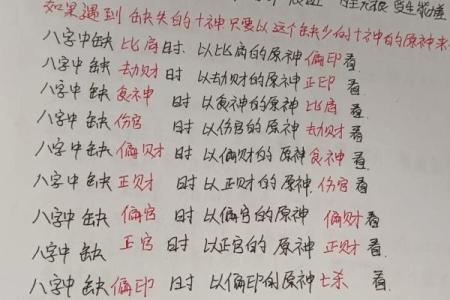 如果遇到缺失的十神只要以这个缺少的十神的原神来
八字中缺比肩时 以比肩的原神偏印看
八字中缺劫财时 以劫财的原神正印看
八字中缺食神时 以食神的原神比肩看
八字中缺伤官时 以伤官的原神劫财看
八字中缺偏财时 以偏财的原神食神看
八字中缺正财时 以正财的原神.伤官看
八字中缺偏官时 以偏官的原神 偏财看
八字中缺正官时 以正官的原神 正财看.
八字中缺偏印时 以偏印的原神七杀 看.